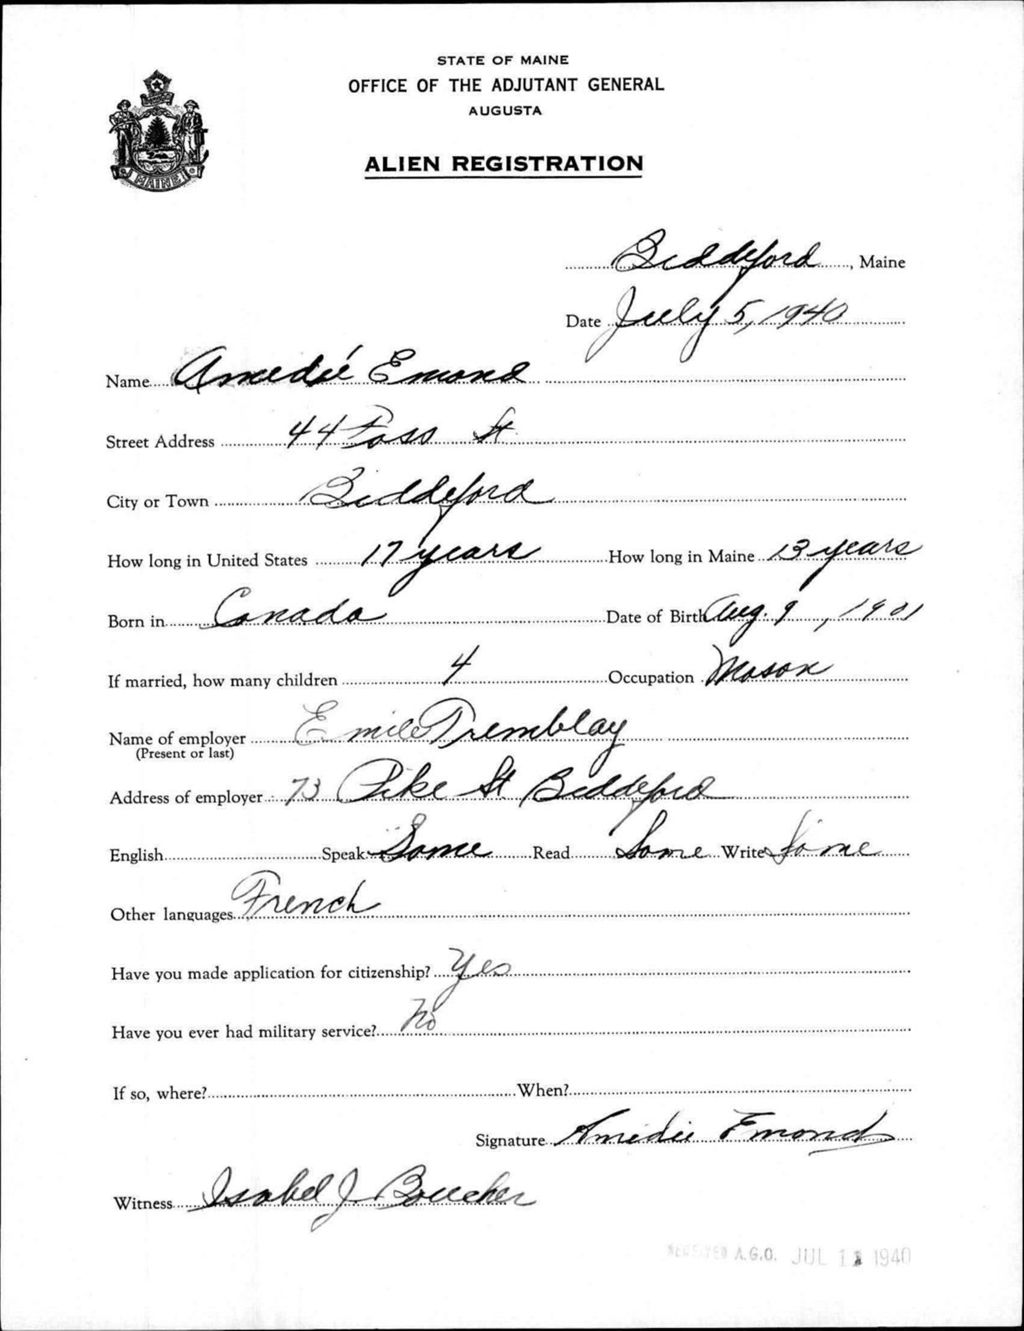 STATE OF MAINE
OFFICE OF THE ADJUTANT GENERAL
AUGUSTA
ALIEN REGISTRATION
MAINE
Biddeford, Maine
Date July 5, 1940
Name Amedié Emond
Street Address 44 Foss St.
City or Town Biddeford
How long in United States 17 years How long in Maine 13 years
Born in Canada Date of Birth Aug. 9, 1901
If married, how many children 4 Occupation Mason
Name of employer Emile Tremblay
(Present or last)
Address of employer 73 Pike St Biddeford
English Speak Some Read Some Write Some
Other languages French
Have you made application for citizenship? Yes
Have you ever had military service? No
If so, where? When?
Signature Amedie Emond
Witness Isabel J. Boucher
RECEIVED A.G.O. JUL 1940